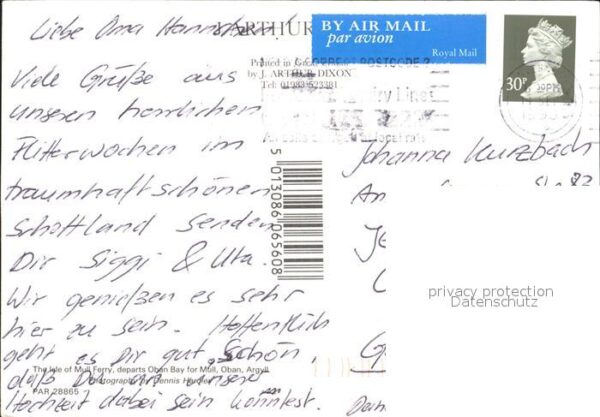 Liebe Oma Hannchen!
ARTHUR
BY AIR MAIL
par avion
Royal Mail
30P
Printed in
by J. ARTHUR DIXON
Tel: 01983 523381
POSTCODE?
Viele Grüße aus
unseren herrlichen
Flitterwochen im
traumhaft schönen
Schottland senden
Dir Siggi & Uta.
Wir genießen es sehr
hier zu sein. Hoffentlich
geht es Dir gut. Schön,
daß Du an unserer
Hochzeit dabei sein konntest.
5 013086 065608
The Isle of Mull Ferry, departs Oban Bay for Mull, Oban, Argyll
Photography by Dennis Hardley
PAR 28865
Johanna Kurzbach
privacy protection
Datenschutz